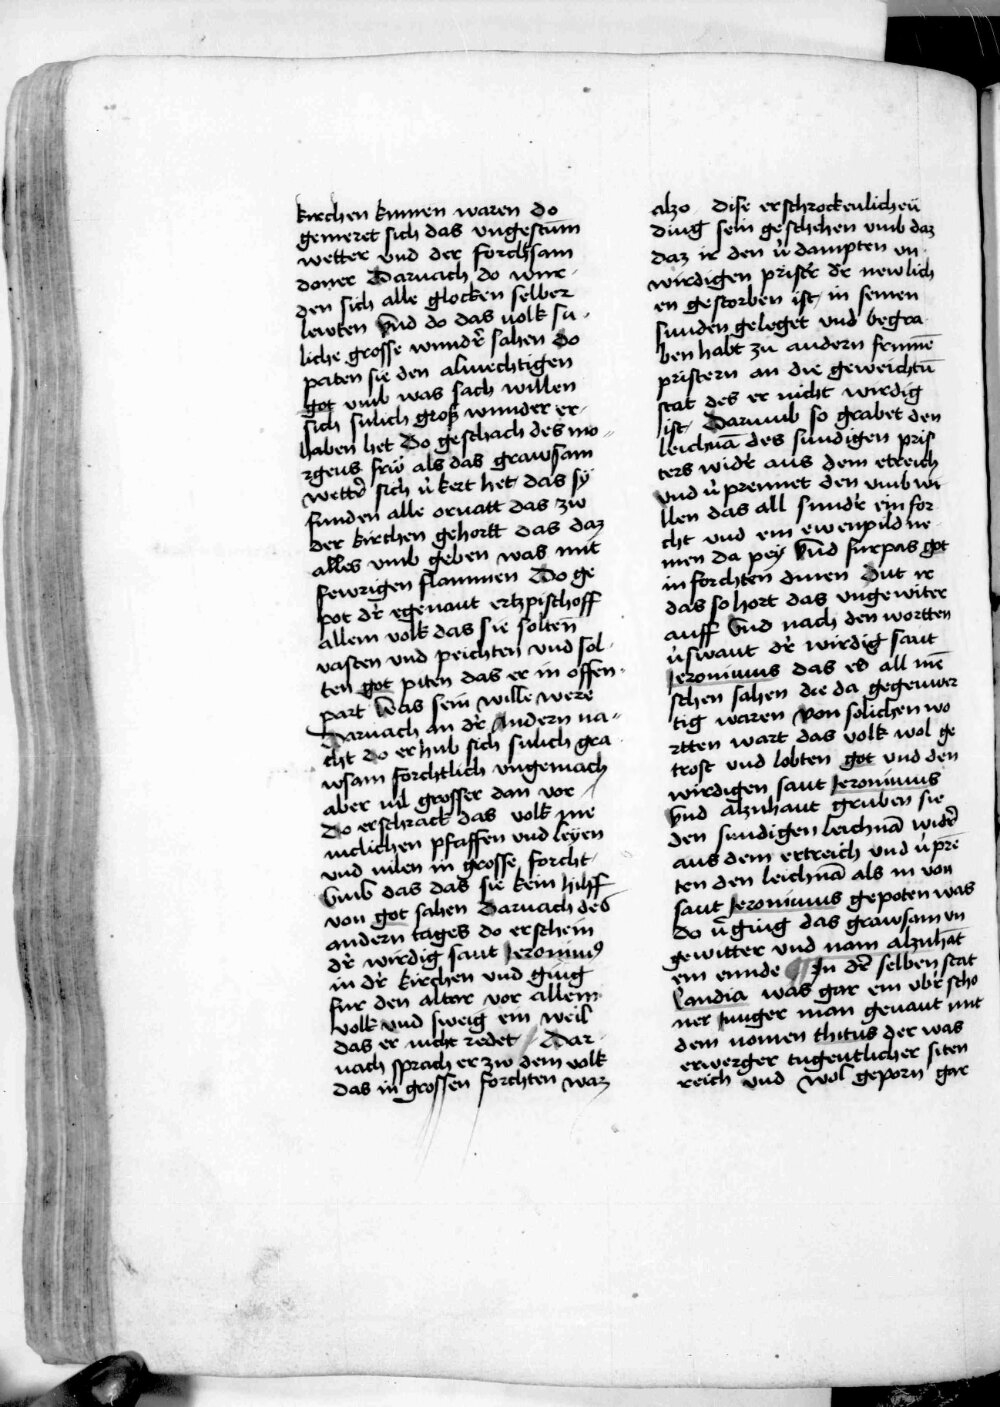 kirchen kumen waren do
gemeret sich das vngestum̄
wetter vnd der forchsam
doner Darnach do wur-
den sich alle glocken selber
lewten Vnd do das volk su-
liche grosse wundr̄ sahen Do
paten sie den almechtigen
got vmb was sach willen
sich sulich groß wunder er-
haben het Do geschach des mo-
rgens frw̄ als das grawsam
wettr̄ sich v̓kert het das sy
funden alle ornatt das zw
der kirchen gehortt das daz
alles vmb geben was mit
fewrigen flammen Do ge
pot dr̄ egenant ertzpischoff
allem volk das sie solten
vasten vnd peichten vnd sol-
ten got piten das er in offen-
part Was sein wille were
Darnach an dr̄ Andern na-
cht do erhub sich sulich gra
wsam forchtlich vngemach
aber uil grosser dan vor /
Do erschrack das volk me
niclichen pfaffen vnd leyen
vnd uilen in grosse forcht
Vmb das das sie kein hilff
von got sahen Darnach des
andern tages do erschein
dr̄ wirdig sant Jeronimꝰ
in dr̄ kirchen vnd ging
fur den altar vor allem
volk vnd sweig ein weil
das er nicht redet / Dar-
nach sprach er zw dem volk
das in grossen forchten waz
alzo dise erschrockenlichen̄
ding sein geschehen vmb daz
daz ir den v̓dampten vn-
wirdigen pristr̄ dr̄ newlich
en gestorben ist / in seinen
sunden geleget vnd begra-
ben habt zu andern frume̅
pristern an die geweichtn̄
stat des er nicht wirdig
ist / Darumb so grabet den
leichna̅ des sundigen pris
ters widr̄ aus dem etreich
vnd v̓prennet den vmb wi
llen das all sundr̄ ein for
cht vnd ein ewenpild ne-
men da pey Vnd furpas got
in forchten dinen Dut ir
das so hort das vngewiter
auff Vnd nach den wortten
v̓swant dr̄ wirdig sant
Jeronimus das es all me̅
schen sahen die da gegenwer
tig waren Von solichen wo
rtten wart das volk wol ge
trost vnd lobten got vnd den
wirdigen sant Jeronimus
Vnd alzuhant gruben sie
den sundigen leichna̅ widr̄
aus dem ertreich vnd v̓pre̅
ten den leichna̅ als in von
sant Jeronimus gepoten was
do v̓ging das grawsam vn
gewitter vnd nam alzuha̅t
ein ennde ¶ In dr̄ selben stat
Candia was gar ein vbr̄ scho
ner Junger man genant mit
dem nomen thitus der was
erwerger tugentlicher siten
reich vnd wol geporn gar